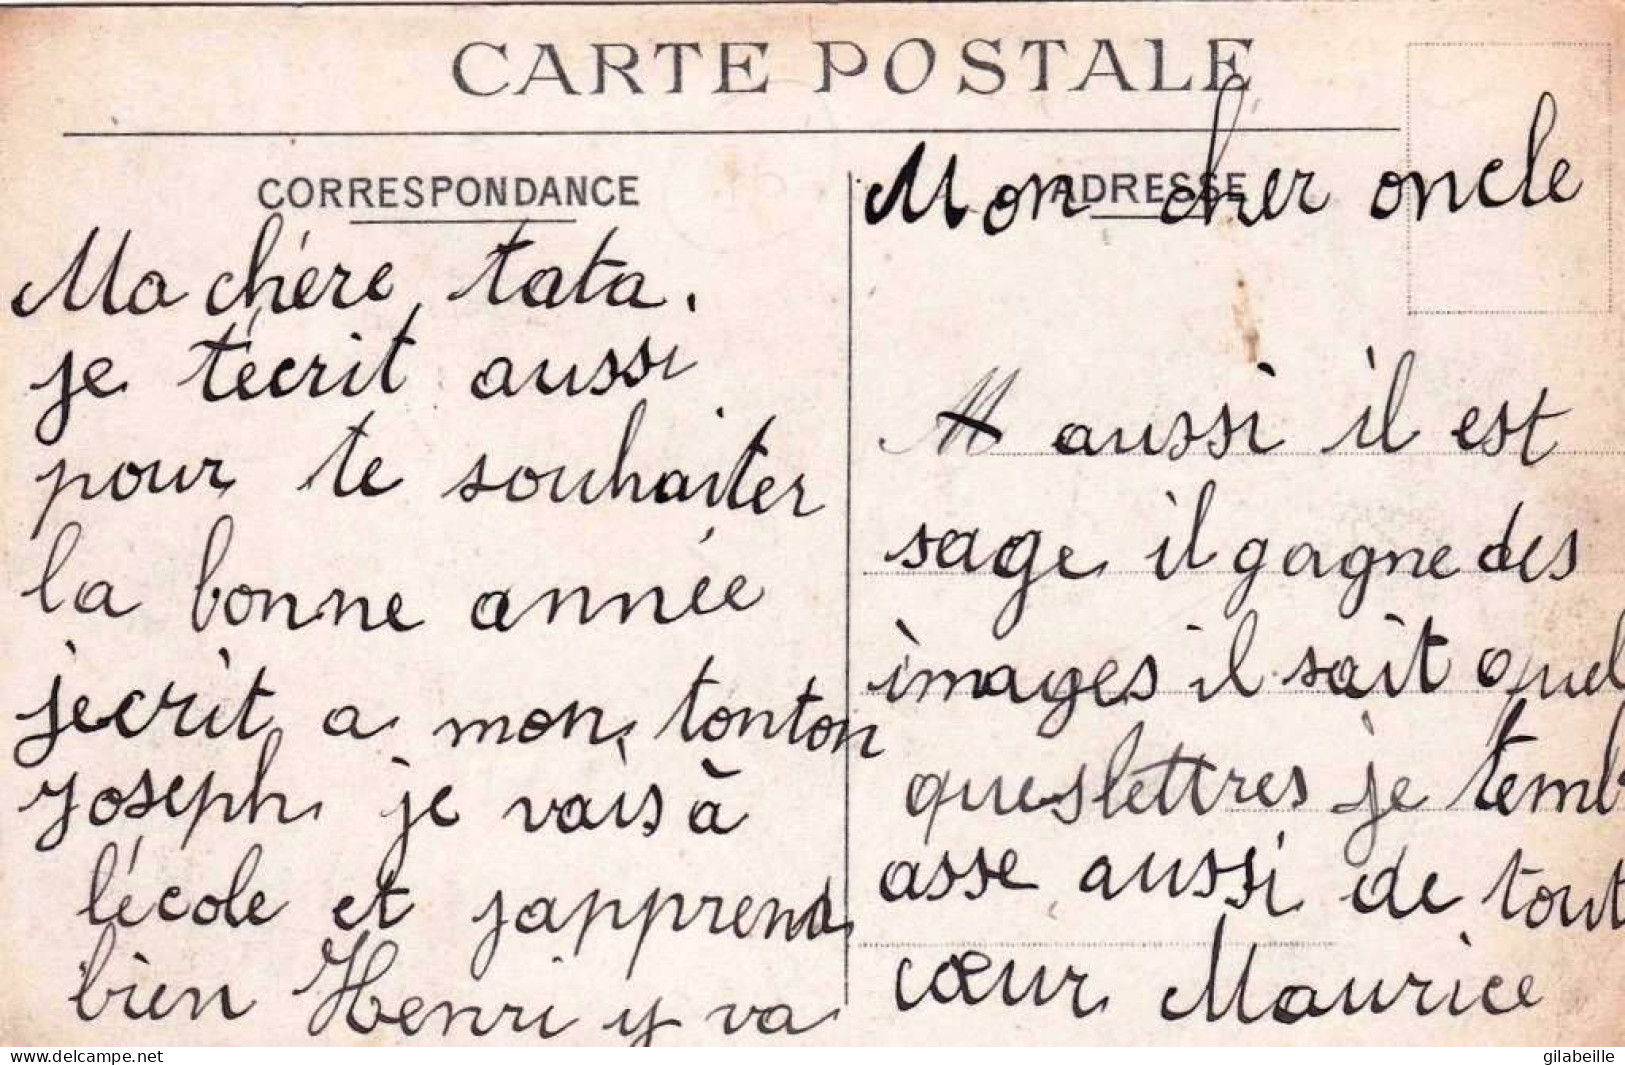 CARTE POSTALE
CORRESPONDANCE
Ma chére tata.
je técrit aussi
pour te souhaiter
la bonne année
jecrit a mon tonton
Joseph je vais à
l'école et japprend
bien Henri y va
ADRESSE
Mon cher oncle
aussi il est
sage il gagne des
images il sait quel
ques lettres je temb
asse aussi de tout
cœur Maurice
https://www.delcampe.net
gilabeille